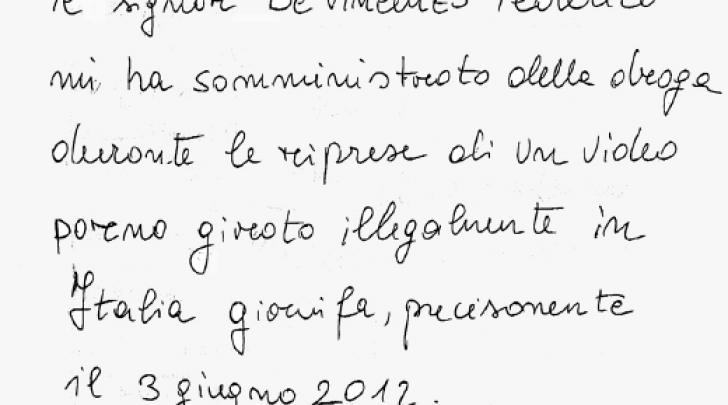 il signor De Vincenzo Federico
mi ha somministrato della droga
durante le riprese di un video
porno girato illegalmente in
Italia giorni fa, precisonente
il 3 giugno 2012.